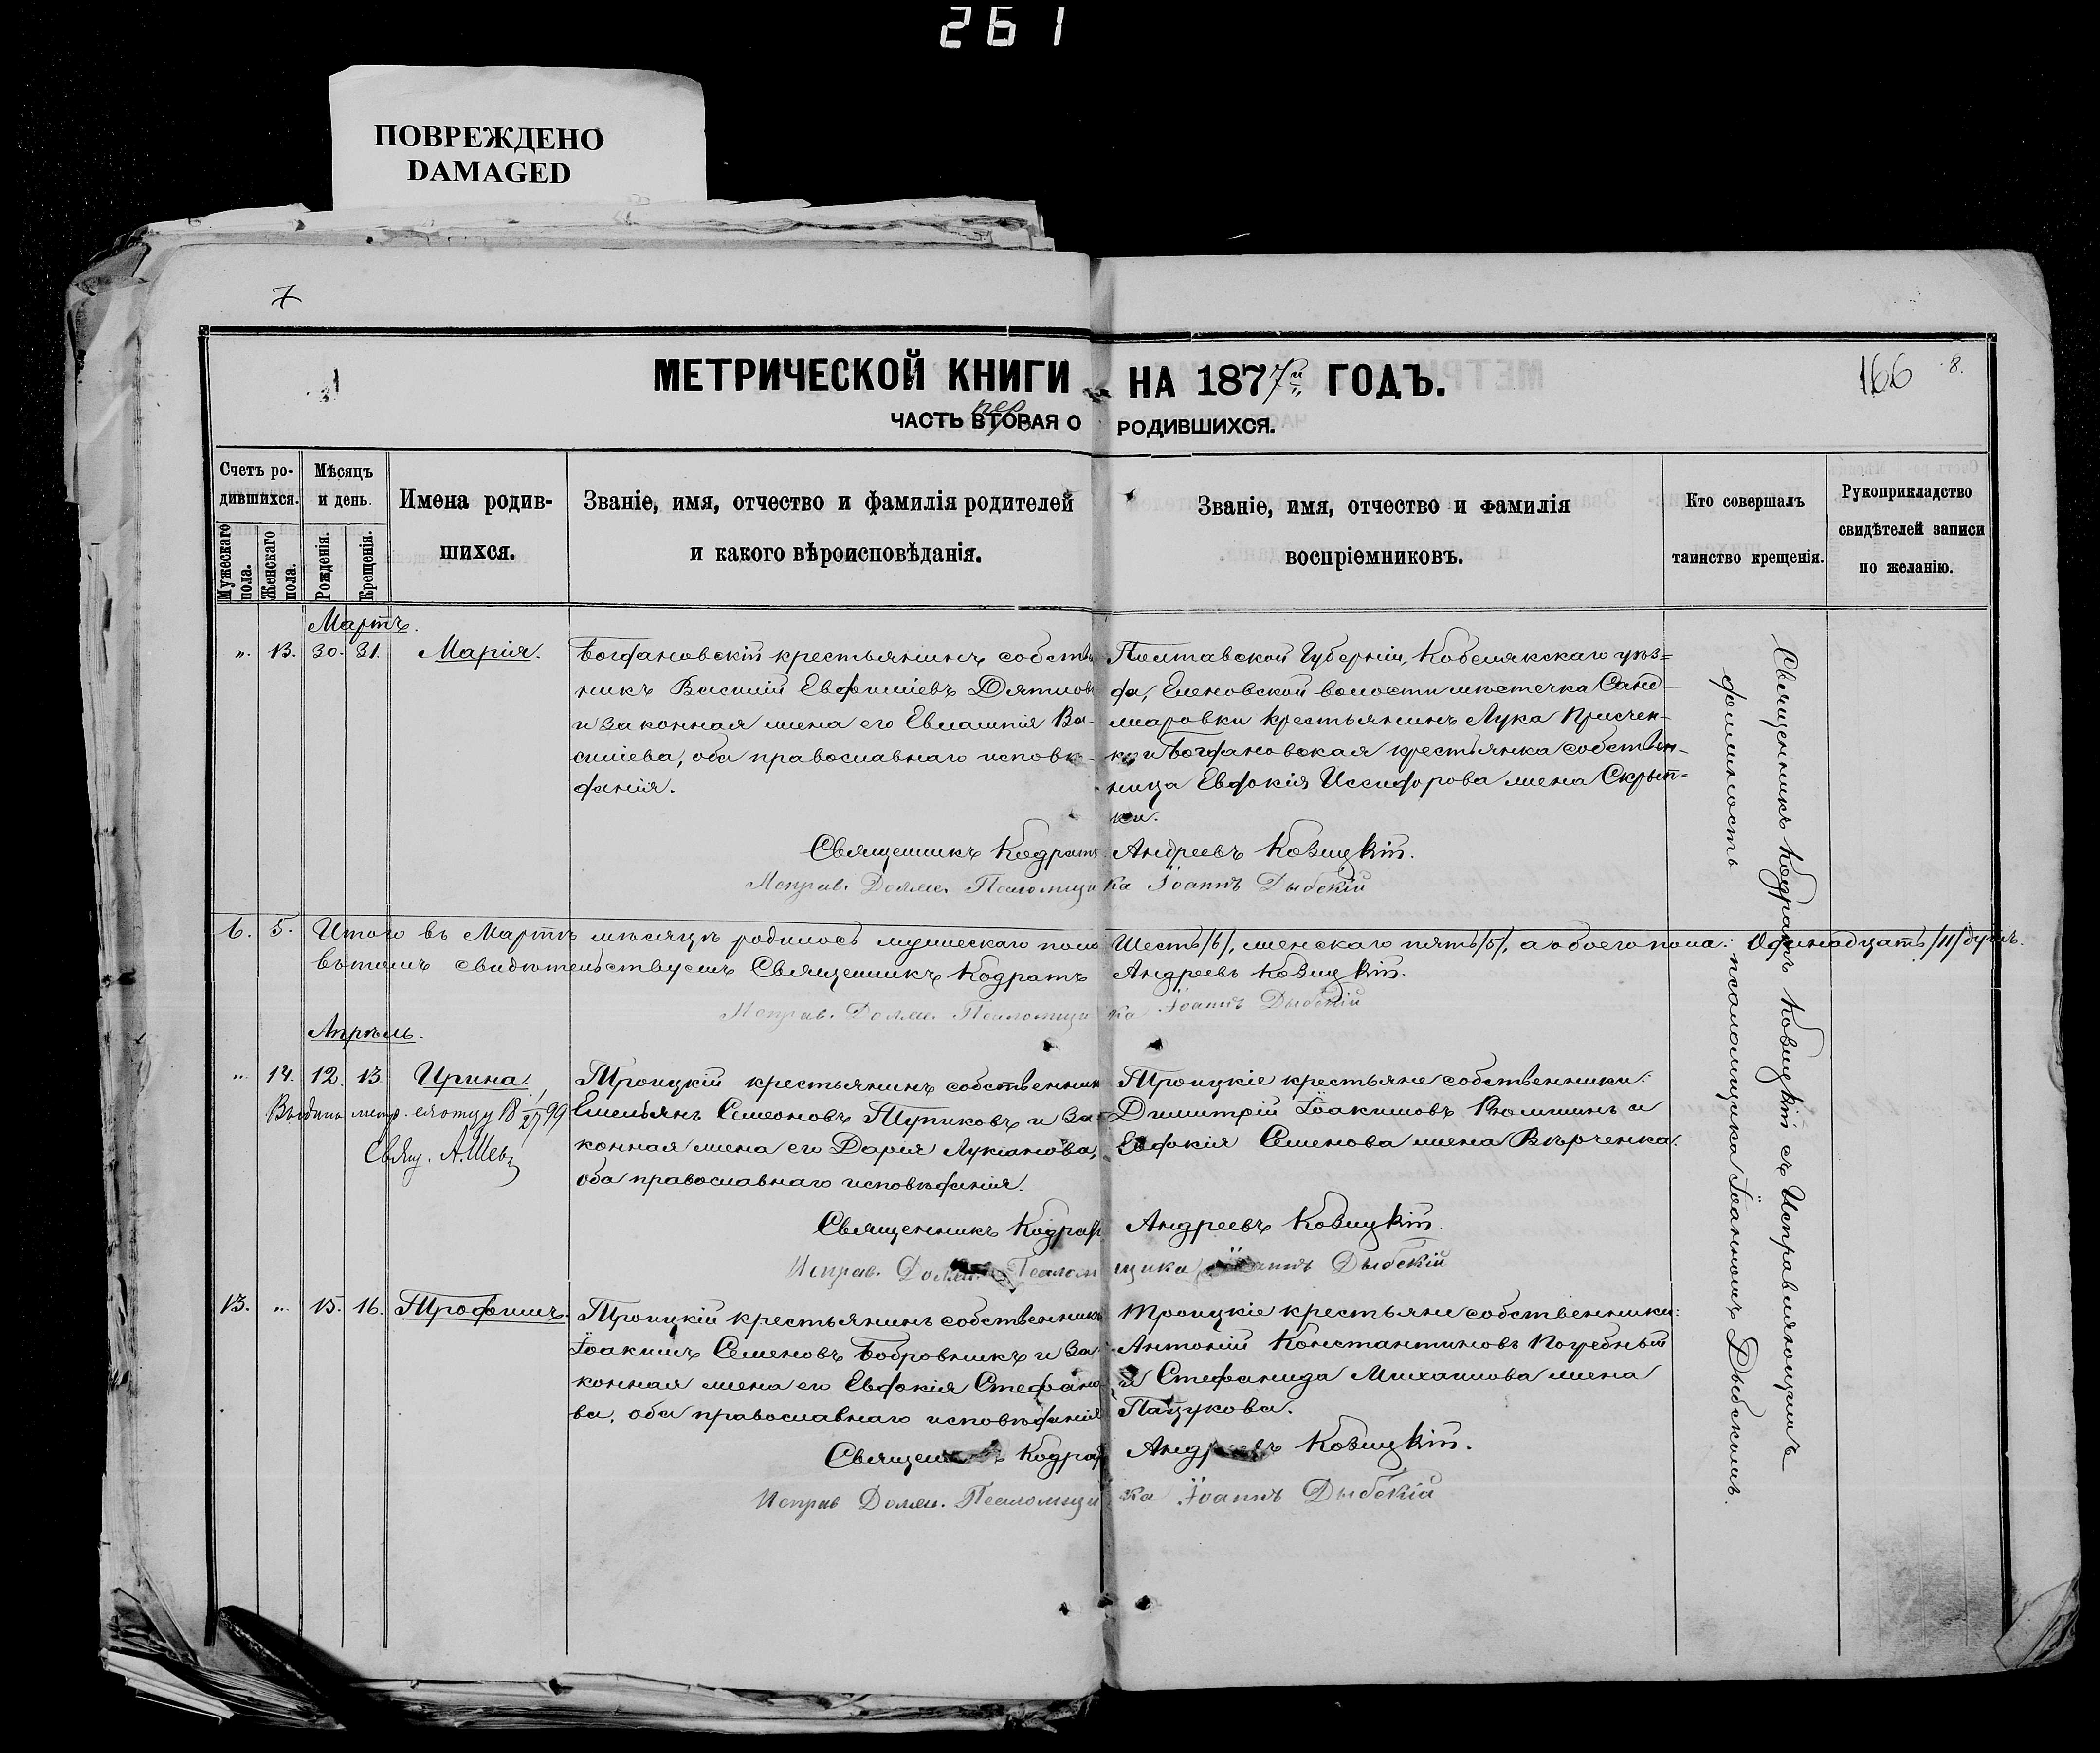 261
ПОВРЕЖДЕНО
DAMAGED
7
166 8.
МЕТРИЧЕСКОЙ КНИГИ НА 1877й ГОДЪ.
пер
ЧАСТЬ ВТОРАЯ О РОДИВШИХСЯ.
Счетъ родившихся.
Мужескаго пола.
Женскаго пола.
Мѣсяцъ и день.
Рожденія.
Крещенія.
Имена родив-
шихся.
Званіе, имя, отчество и фамилія родителей
и какого вѣроисповѣданія.
Званіе, имя, отчество и фамилія
воспріемниковъ.
Кто совершалъ
таинство крещенія.
Рукоприкладство
свидѣтелей записи
по желанію.
Мартъ.
„. 13. 30. 31. Марія.
Богдановскій крестьянинъ собствен
никъ Василій Евфиміевъ
и законная жена его Евлампія Ва-
силіева, оба православнаго исповѣ-
данія.
Полтавской Губерніи, Кобелякскаго уѣз=
да, волости мѣстечка
крестьянинъ Лука
и Богдановская крестьянка собствен-
ница Евдокія жена Скрып=
ки.
Священникъ Кодратъ Андреевъ Ковицкій.
Исправ. Долж. Псаломщика Іоаннъ Дыбскій
6. 5. Итого въ Мартѣ мѣсяцѣ родилось мужескаго пола Шесть /6/, женскаго пять /5/, а обоего пола: Одинадцать /11/ душъ.
въ томъ свидѣтельствуемъ Священникъ Кодратъ Андреевъ Ковицкій.
Исправ. Долж. Псаломщика Іоаннъ Дыбскій
Апрѣль.
„. 14. 12. 13. Ирина.
Выдана метр. отцу 18 99
Свящ. А.
Троицкій крестьянинъ собственник
Емельянъ Симеоновъ Тупиковъ и за-
конная жена его Дарія Лукіанова,
оба православнаго исповѣданія.
Троицкіе крестьяне собственники:
Димитрій Іоакимовъ и
Евдокія Семенова жена Вѣрченка.
Священникъ Кодрат Андреевъ Ковицкій.
Исправ. Долж. Псаломщика Іоаннъ Дыбскій
13. „. 15. 16. Трофимъ.
Троицкій крестьянинъ собственникъ
Іоакимъ Семеновъ Бобровникъ и за-
конная жена его Евдокія Стефано-
ва, оба православнаго исповѣданія
Троицкіе крестьяне собственники:
Антоній Константиновъ Погребный
и Стефанида Михаилова жена
Пацукова.
Священникъ Кодрат Андреевъ Ковицкій.
Исправ Долж. Псаломщика Іоаннъ Дыбскій
Священникъ Кодратъ Ковицкій съ Исправляющимъ
должность псаломщика Іоанномъ Дыбскимъ.